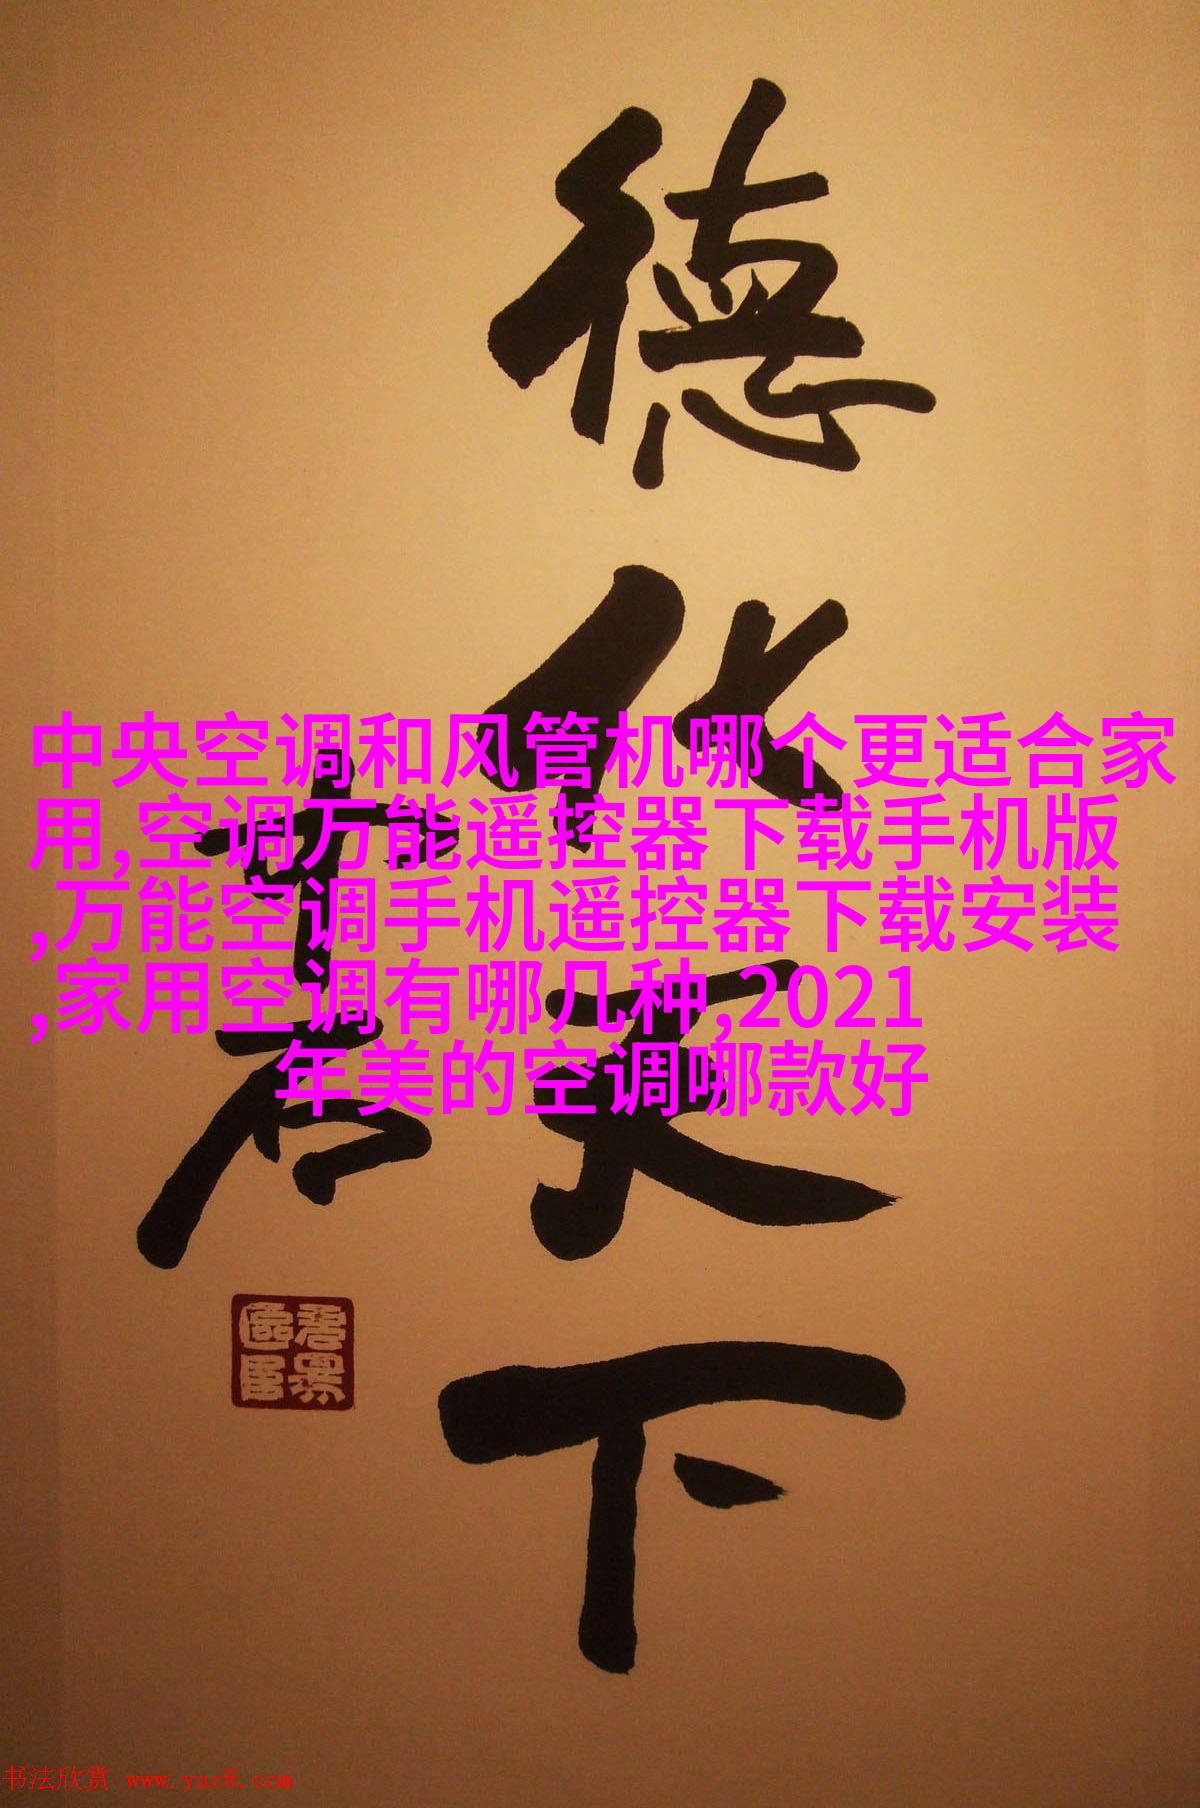 德化天下
廿石
中央空调和风管机哪个更适合家
用,空调万能遥控器下载手机版
,万能空调手机遥控器下载安装
,家用空调有哪几种,2021
年美的空调哪款好
书法欣赏 www.yac8.com